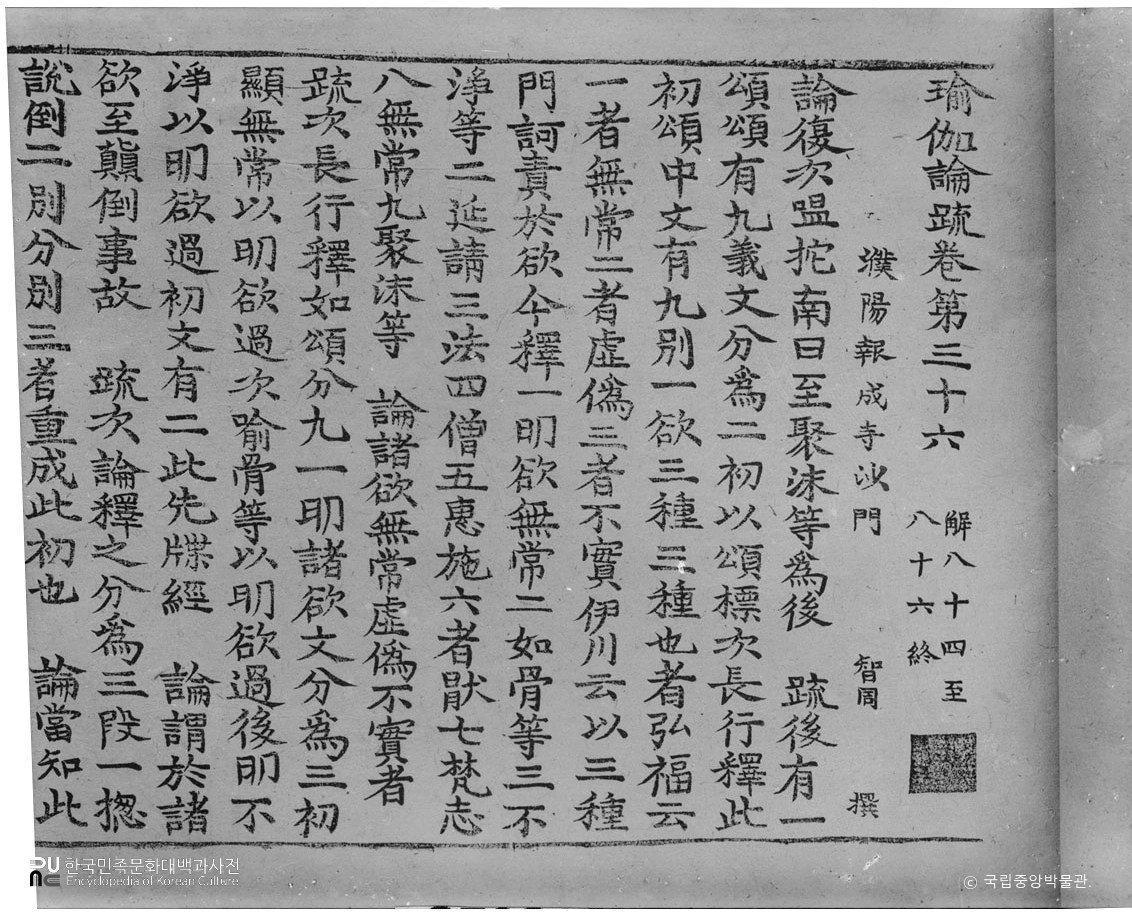 瑜伽論疏卷第三十六
解八十四至
八十六終
濮陽報成寺沙門 智周 撰
論復次嗢拕南曰至聚沫等為後 疏後有一
頌頌有九義文分為二初以頌標次長行釋此
初頌中文有九別一欲三種三種也者弘福云
一者無常二者虛偽三者不實伊川云以三種
門訶責於欲今釋一明欲無常二如骨等三不
淨等二延請三法四僧五惠施六者猒七梵志
八無常九聚沫等 論諸欲無常虛偽不實者
疏次長行釋如頌分九一明諸欲文分為三初
顯無常以明欲過次喻骨等以明欲過後明不
淨以明欲過初文有二此先牒經 論謂於諸
欲至顛倒事故 疏次論釋之分為三段一揔
說倒二別分別三者重成此初也 論當知此
한국민족문화대백과사전
Encyclopedia of Korean Culture
© 국립중앙박물관.